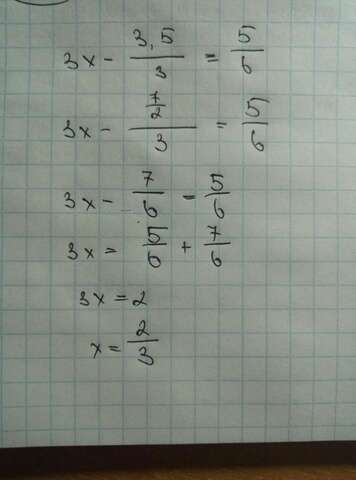 3x - 3,5/3 = 5/6
3x - (7/2)/3 = 5/6
3x - 7/6 = 5/6
3x = 5/6 + 7/6
3x = 2
x = 2/3